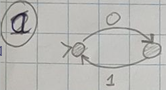 a
0
1